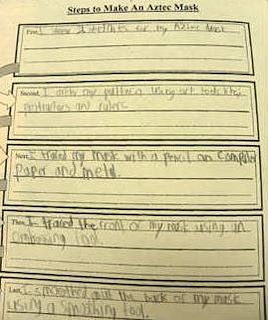 Steps to Make An Aztec Mask
First, I drew 2 sketches for my Aztec Mask
Second, I my pattern using art tools like
protractors and rulers.
Next, I traced my mask with a pencil on computer
paper and metal.
Then, I traced the front of my mask using an
embossing tool.
Last, I smoothed out the back of my mask
using a smoothing tool.